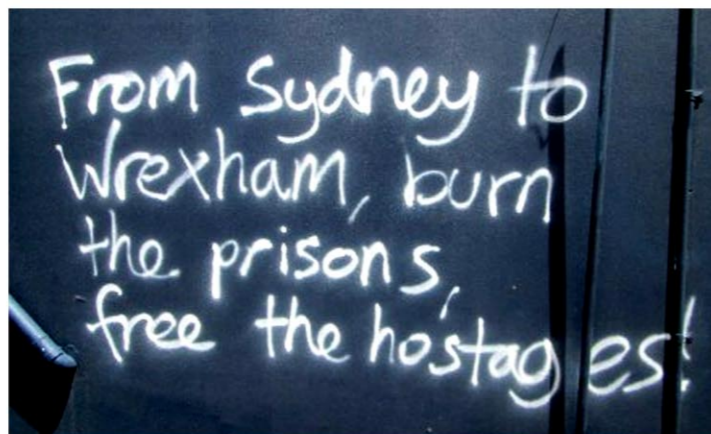 From Sydney to
Wrexham, burn
the prisons,
free the hostages!